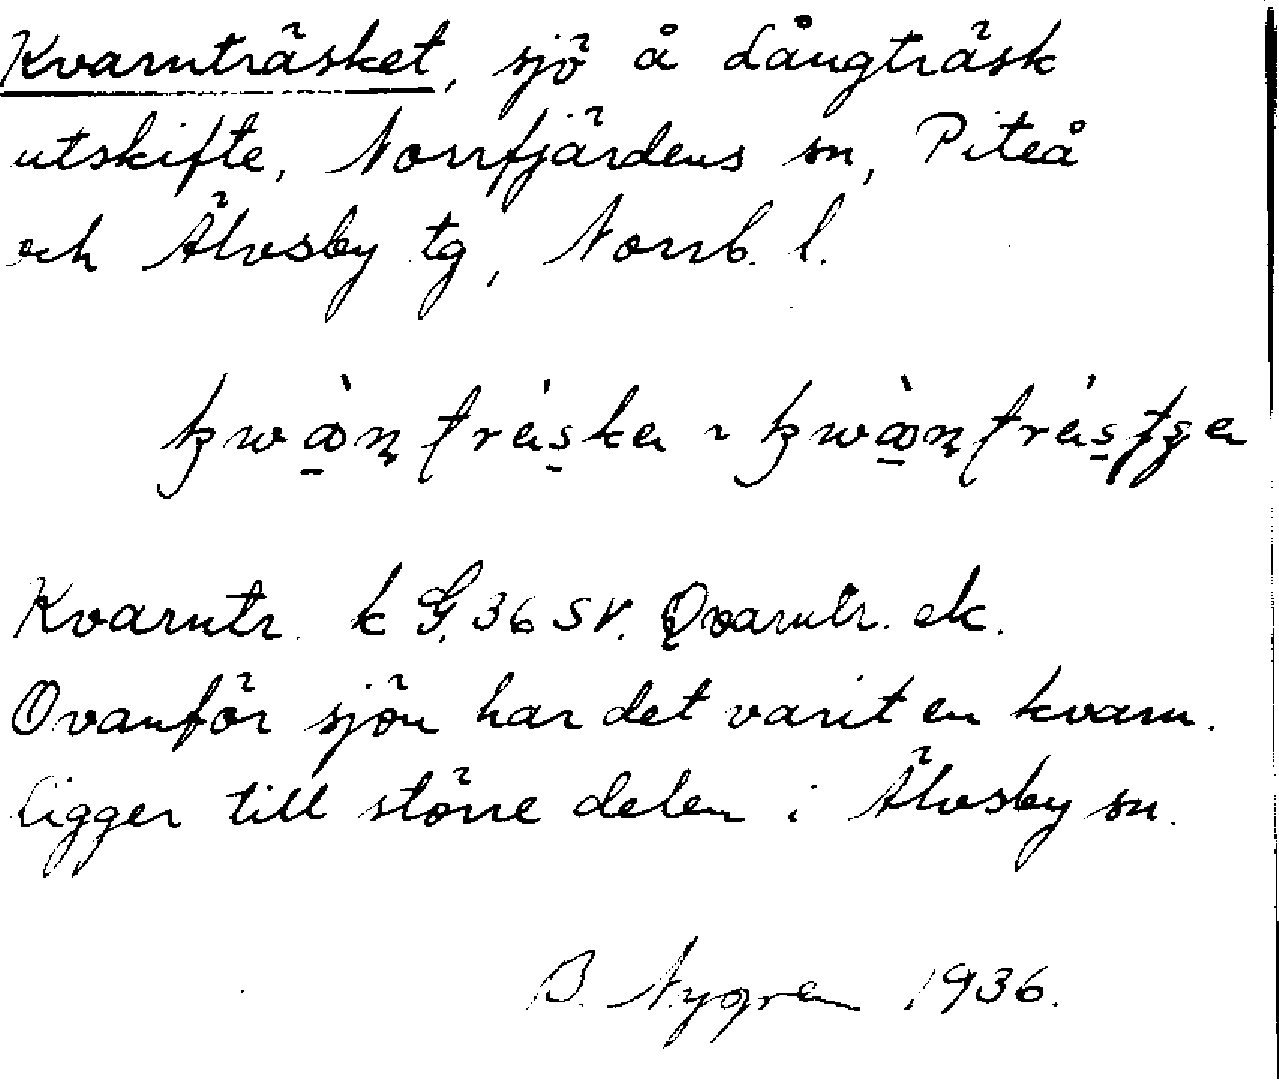 Kvarnträsket, sjö å Långträsk
utskifte, Norrfjärdens sn, Piteå
och Älvsby tg, Norrb. l.
Kvarntr. k G. 36 SV. Qvarntr. ek.
Ovanför sjön har det varit en kvarn.
Ligger till större delen i Älvsby sn.
B. Nygren 1936.